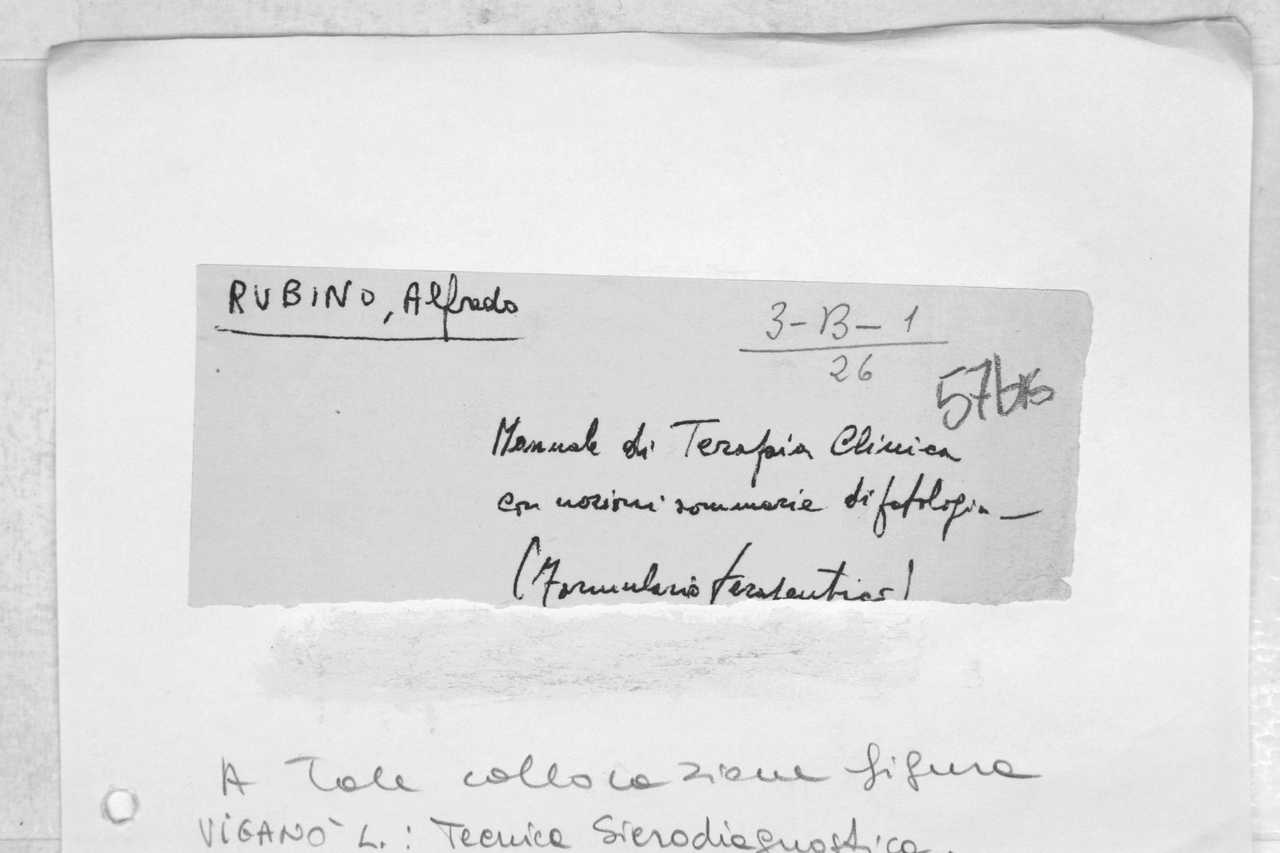 RUBINO, Alfredo
3-B-1
26
57bis
Manuale di Terapia Clinica
con nozioni sommarie di patologia —
(Formulario terapeutico)
A tale collocazione figura
VIGANÒ L.: Tecnica Sierodiagnostica.